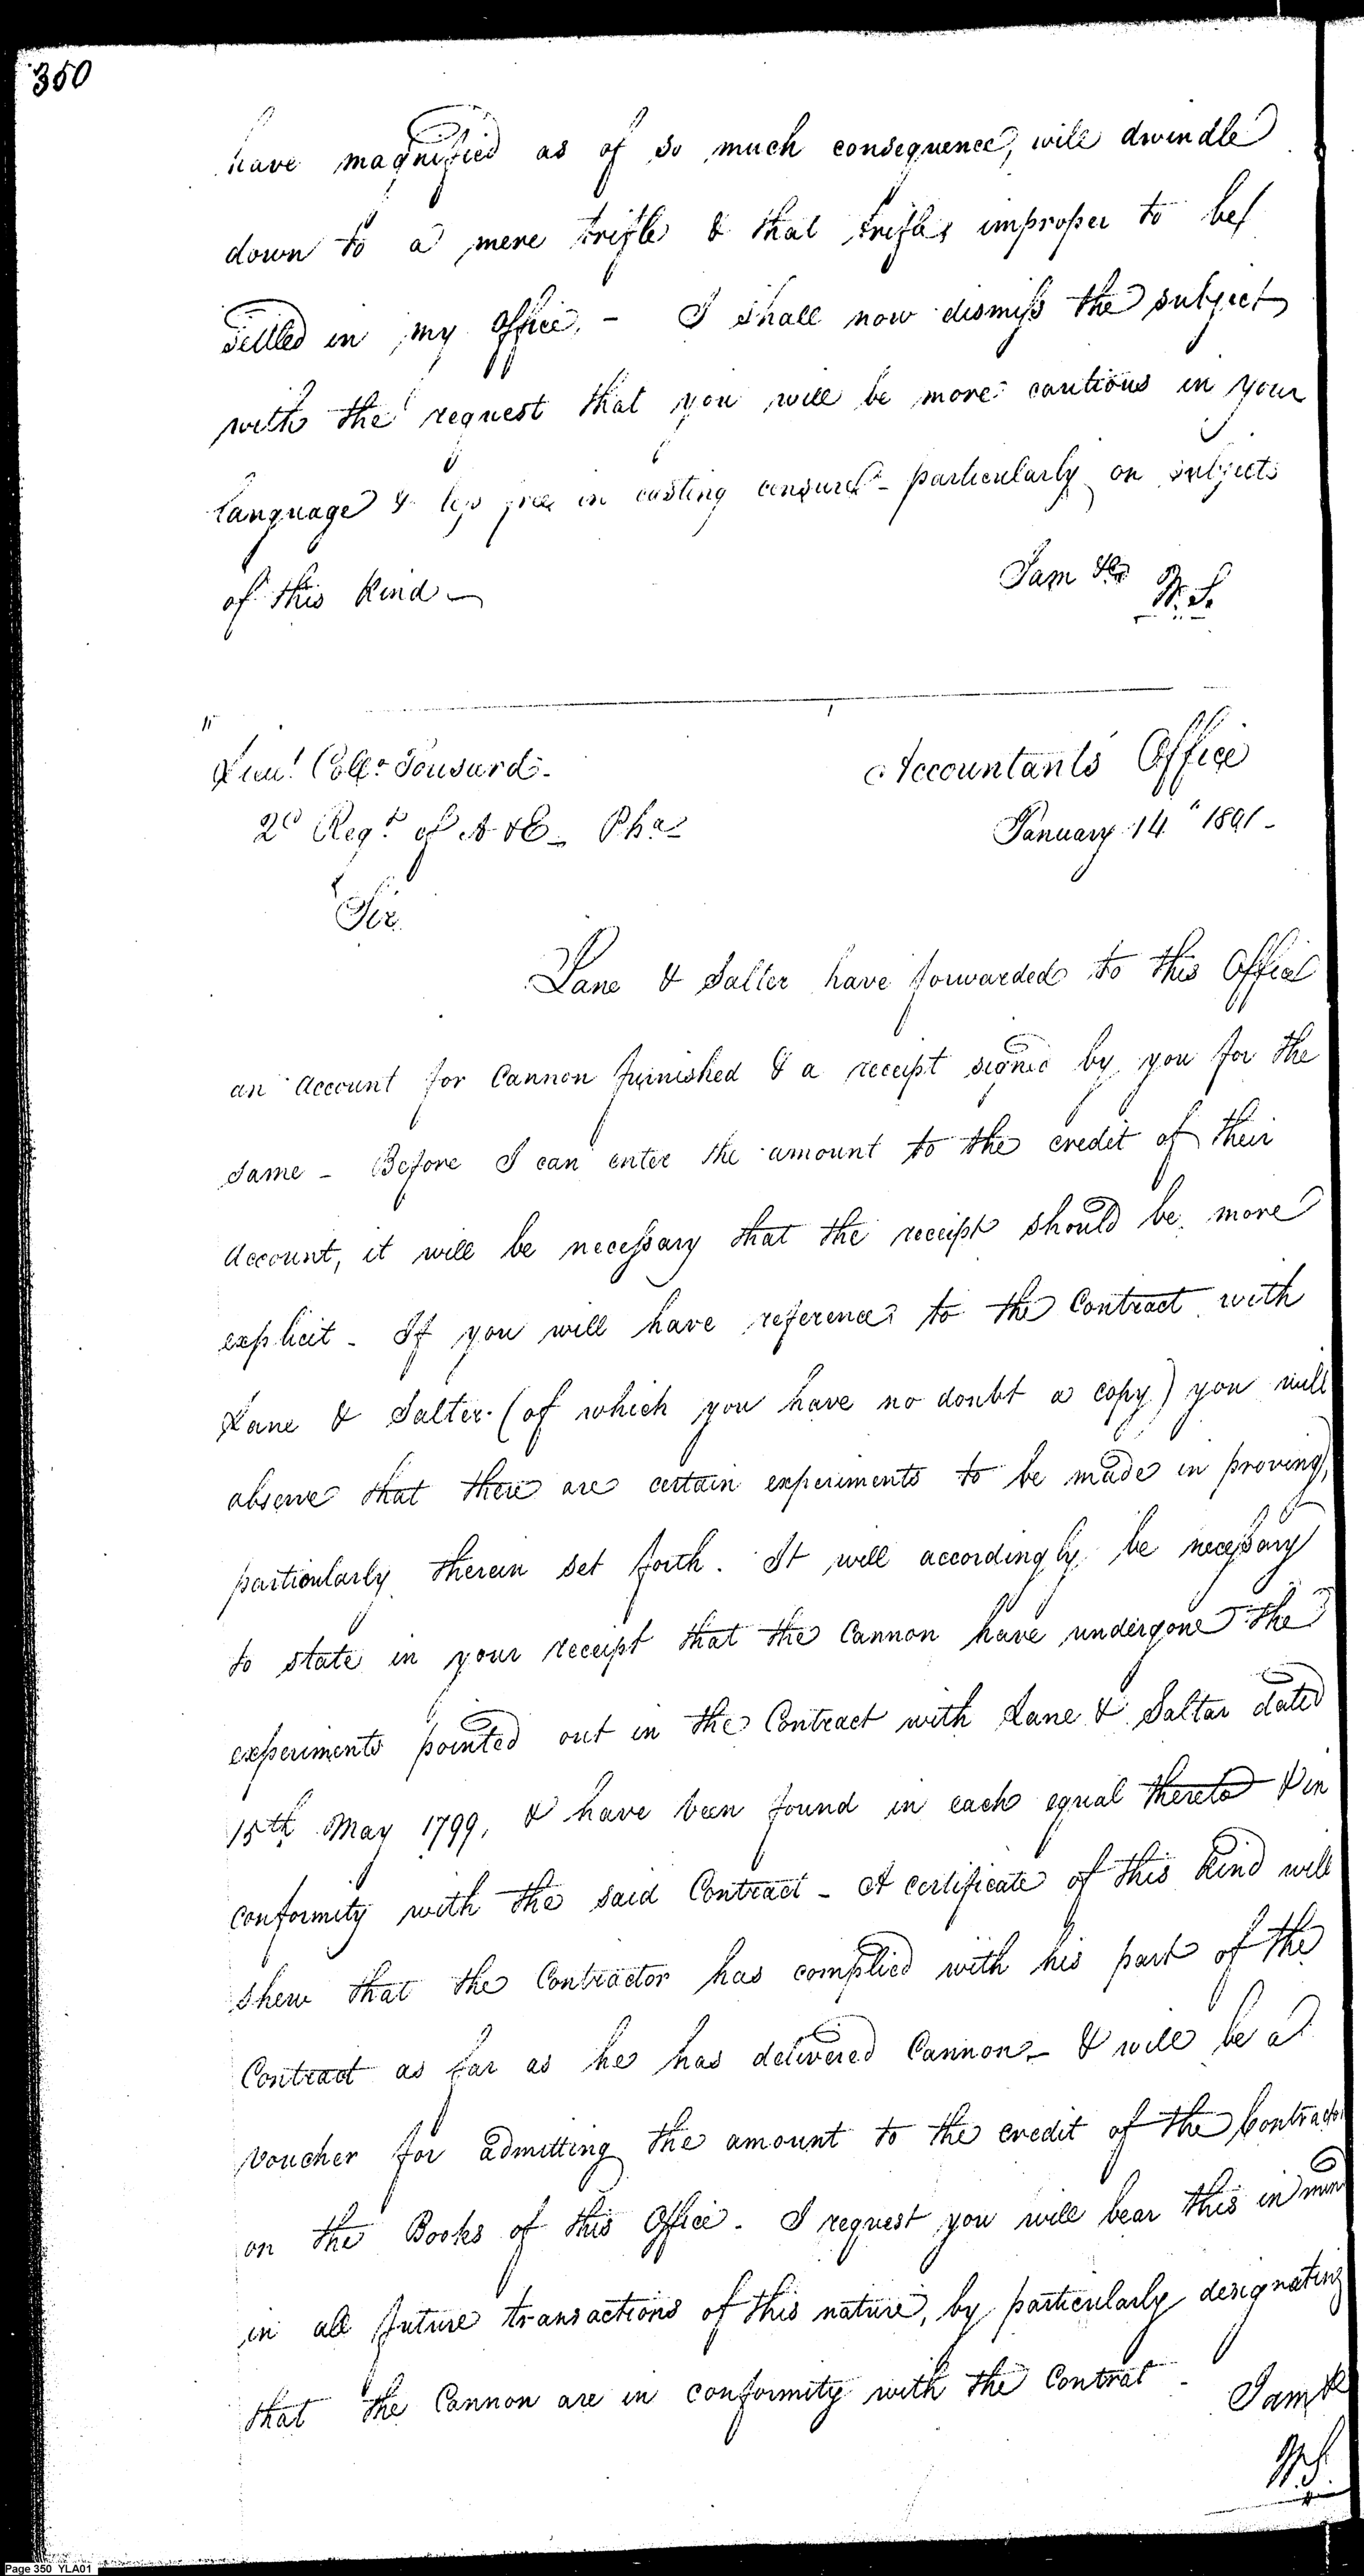 350
have magnified as of so much consequence, will dwindle
down to a mere trifle & that trifle improper to be
settled in my office. - I shall now dismiss the subject
with the request that you will be more cautious in your
language & less free in casting censure - particularly on subjects
of this kind -
I am &c
W. S.
Lieut. Coll. Tousard.
2d Regt. of A & E - Pha.
Accountants Office
January 14th 1801 -
Sir
Lane & Salter have forwarded to this Office
an account for Cannon furnished & a receipt signed by you for the
same - Before I can enter the amount to the credit of their
account, it will be necessary that the receipt should be more
explicit - If you will have reference to the Contract with
Lane & Salter (of which you have no doubt a copy) you will
observe that there are certain experiments to be made in proving,
particularly therein set forth. It will accordingly be necessary
to state in your receipt that the Cannon have undergone the
experiments pointed out in the Contract with Lane & Saltar dated
15th May 1799, & have been found in each equal thereto & in
conformity with the said Contract - A certificate of this kind will
shew that the Contractor has complied with his part of the
Contract as far as he has delivered Cannon - & will be a
voucher for admitting the amount to the credit of the Contractor
on the Books of this Office - I request you will bear this in mind
in all future transactions of this nature, by particularly designating
that the Cannon are in conformity with the Contrat -
I am &c
W. S.
Page 350 YLA01